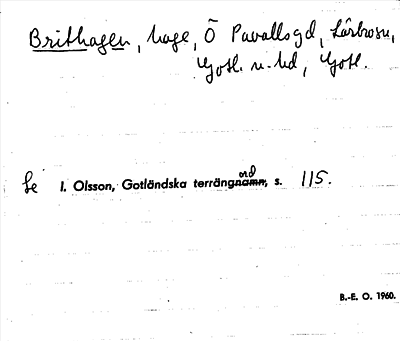 Brithagen, hage, Ö Pavallsgd, Lärbrosn,
Gotl. n. hd, Gotl.
Se I. Olsson, Gotländska terrängnamn, s. 115.
ord
B.-E. O. 1960.